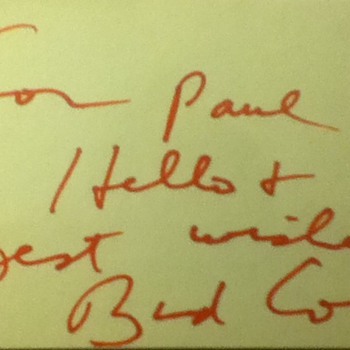 For Paul
Hello +
Best wishe
Bud Co